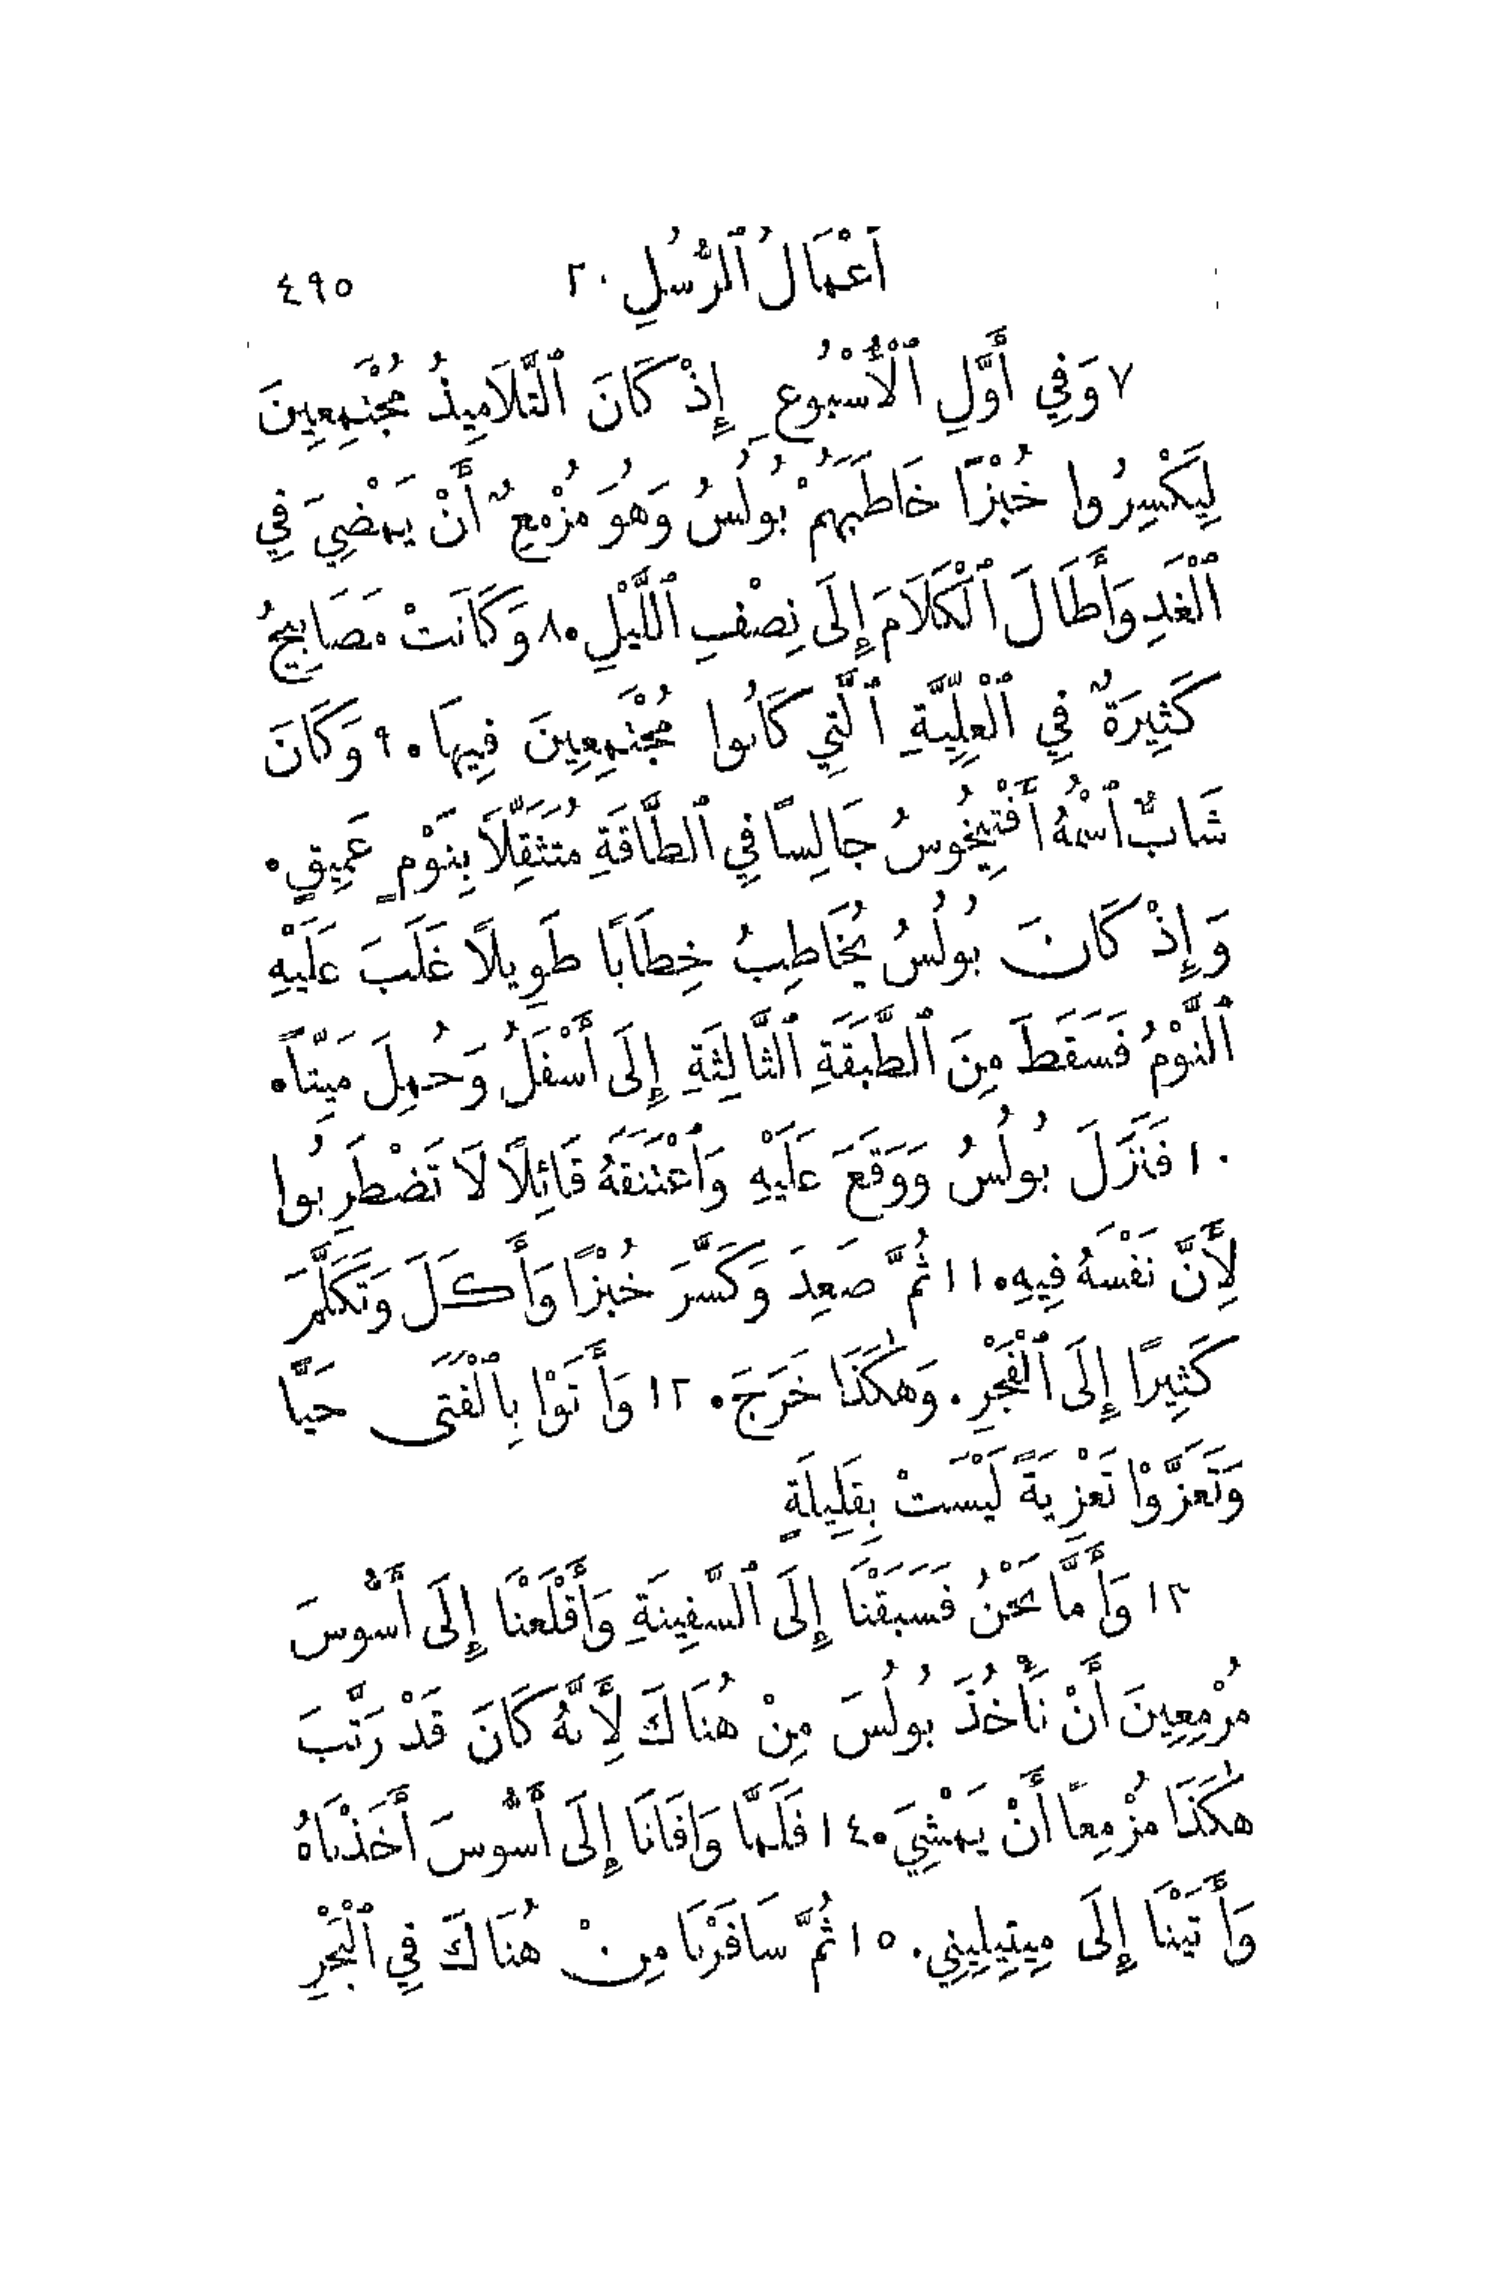 أَعْمَالُ ٱلرُّسُلِ ٢٠ ٤٩٥
٧ وَفِي أَوَّلِ ٱلْأُسْبُوعِ إِذْ كَانَ ٱلتَّلَامِيذُ مُجْتَمِعِينَ
لِيَكْسِرُوا خُبْزًا خَاطَبَهُمْ بُولُسُ وَهُوَ مُزْمِعٌ أَنْ يَمْضِيَ فِي
ٱلْغَدِ وَأَطَالَ ٱلْكَلَامَ إِلَى نِصْفِ ٱللَّيْلِ. ٨ وَكَانَتْ مَصَابِيحُ
كَثِيرَةٌ فِي ٱلْعِلِّيَّةِ ٱلَّتِي كَانُوا مُجْتَمِعِينَ فِيهَا. ٩ وَكَانَ
شَابٌّ ٱسْمُهُ أَفْتِيخُوسُ جَالِسًا فِي ٱلطَّاقَةِ مُتَثَقِّلًا بِنَوْمٍ عَمِيقٍ.
وَإِذْ كَانَ بُولُسُ يُخَاطِبُ خِطَابًا طَوِيلًا غَلَبَ عَلَيْهِ
ٱلنَّوْمُ فَسَقَطَ مِنَ ٱلطَّبَقَةِ ٱلثَّالِثَةِ إِلَى أَسْفَلُ وَحُمِلَ مَيِّتًا.
١٠ فَنَزَلَ بُولُسُ وَوَقَعَ عَلَيْهِ وَٱعْتَنَقَهُ قَائِلًا لَا تَضْطَرِبُوا
لِأَنَّ نَفْسَهُ فِيهِ. ١١ ثُمَّ صَعِدَ وَكَسَّرَ خُبْزًا وَأَكَلَ وَتَكَلَّمَ
كَثِيرًا إِلَى ٱلْفَجْرِ. وَهٰكَذَا خَرَجَ. ١٢ وَأَتَوْا بِٱلْفَتَى حَيًّا
وَتَعَزَّوْا تَعْزِيَةً لَيْسَتْ بِقَلِيلَةٍ
١٣ وَأَمَّا نَحْنُ فَسَبَقْنَا إِلَى ٱلسَّفِينَةِ وَأَقْلَعْنَا إِلَى أَسُّوسَ
مُزْمِعِينَ أَنْ نَأْخُذَ بُولُسَ مِنْ هُنَاكَ لِأَنَّهُ كَانَ قَدْ رَتَّبَ
هٰكَذَا مُزْمِعًا أَنْ يَمْشِيَ. ١٤ فَلَمَّا وَافَانَا إِلَى أَسُّوسَ أَخَذْنَاهُ
وَأَتَيْنَا إِلَى مِيتِيلِينِي. ١٥ ثُمَّ سَافَرْنَا مِنْ هُنَاكَ فِي ٱلْبَحْرِ